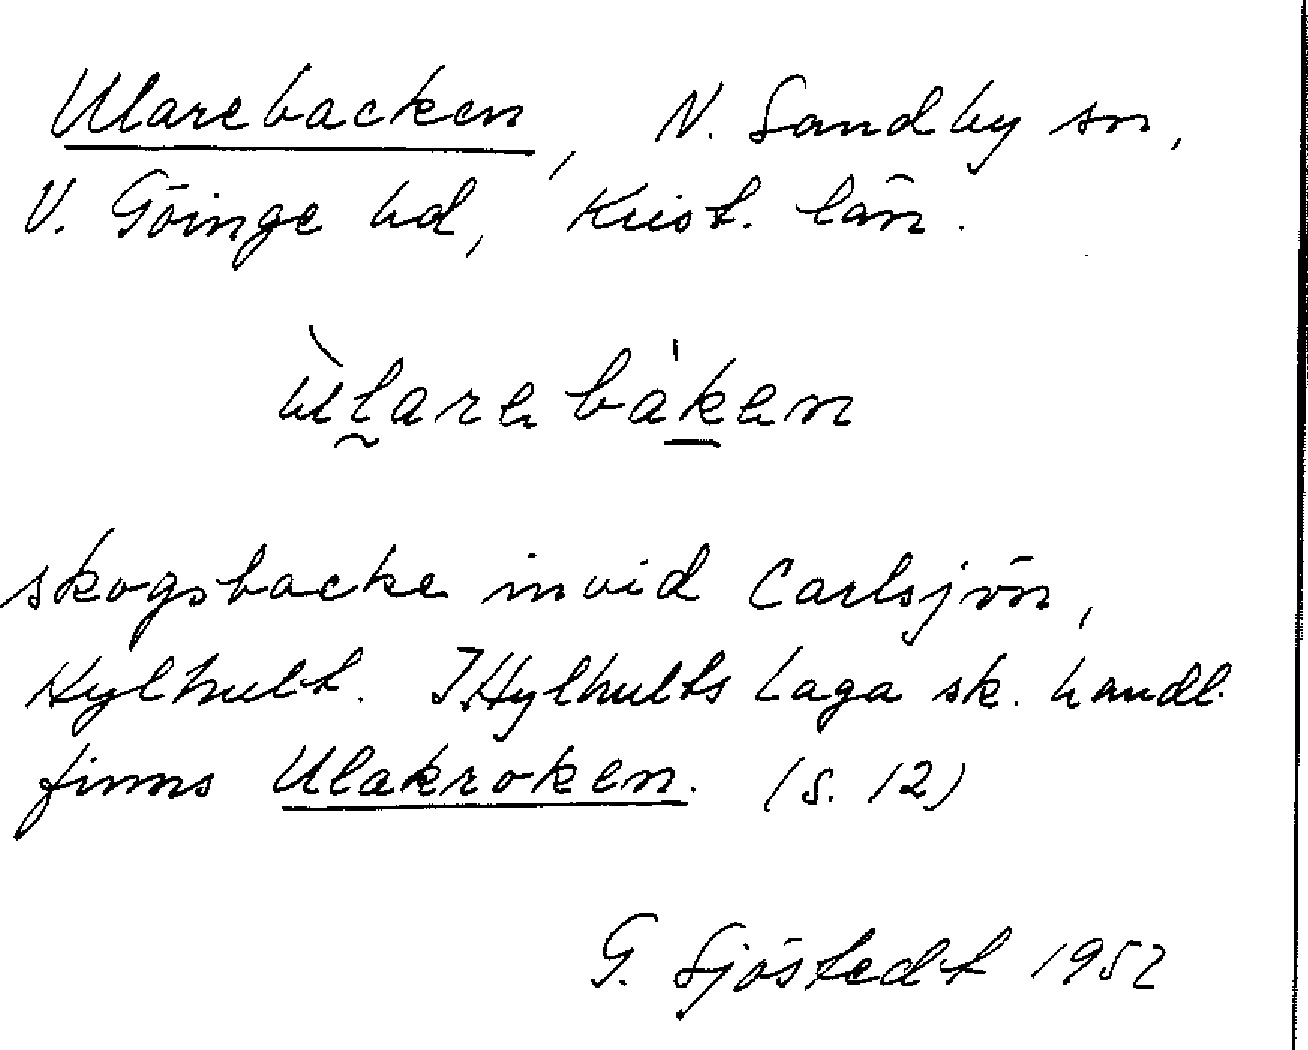 Ularebacken, N. Sandby sn,
V. Göinge hd, Krist. län.
ùlarebàken
skogsbacke invid Carlsjön,
Hylhult. I Hylhults Laga sk. handl.
finns Ulakroken. (S. 12)
G. Sjöstedt 1952